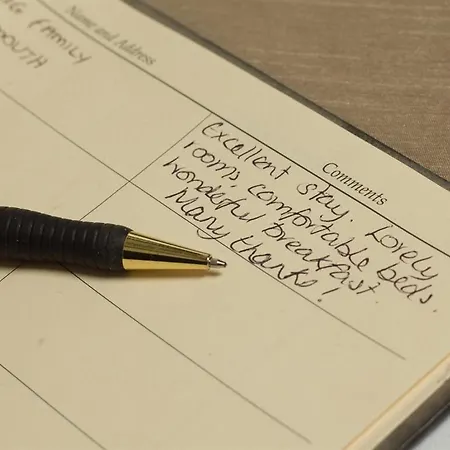 Name and Address
Comments
FAMILY
Excellent stay. Lovely
rooms, comfortable beds.
wonderful breakfast.
Many thanks!